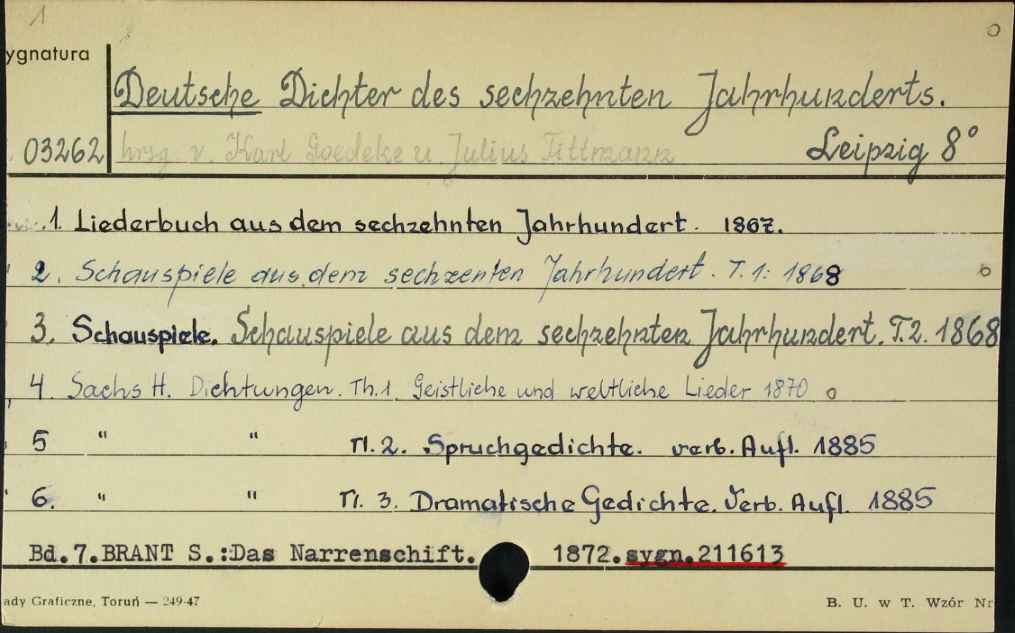 1
ygnatura
Deutsche Dichter des sechzehnten Jahrhunderts.
03262 hrsg. v. Karl Goedeke u. Julius Tittmann Leipzig 8°
1. Liederbuch aus dem sechzehnten Jahrhundert. 1867.
2. Schauspiele aus dem sechzenten Jahrhundert. T. 1: 1868
3. Schauspiele. Schauspiele aus dem sechzehnten Jahrhundert. T. 2. 1868
4 Sachs H. Dichtungen. Th. 1. Geistliche und weltliche Lieder 1870
5 " " Tl. 2. Spruchgedichte. verb. Aufl. 1885
6. " " Tl. 3. Dramatische Gedichte. Verb. Aufl. 1885
Bd.7.BRANT S.:Das Narrenschift. 1872.sygn.211613
ady Graficzne, Toruń — 249-47 B. U. w T. Wzór Nr